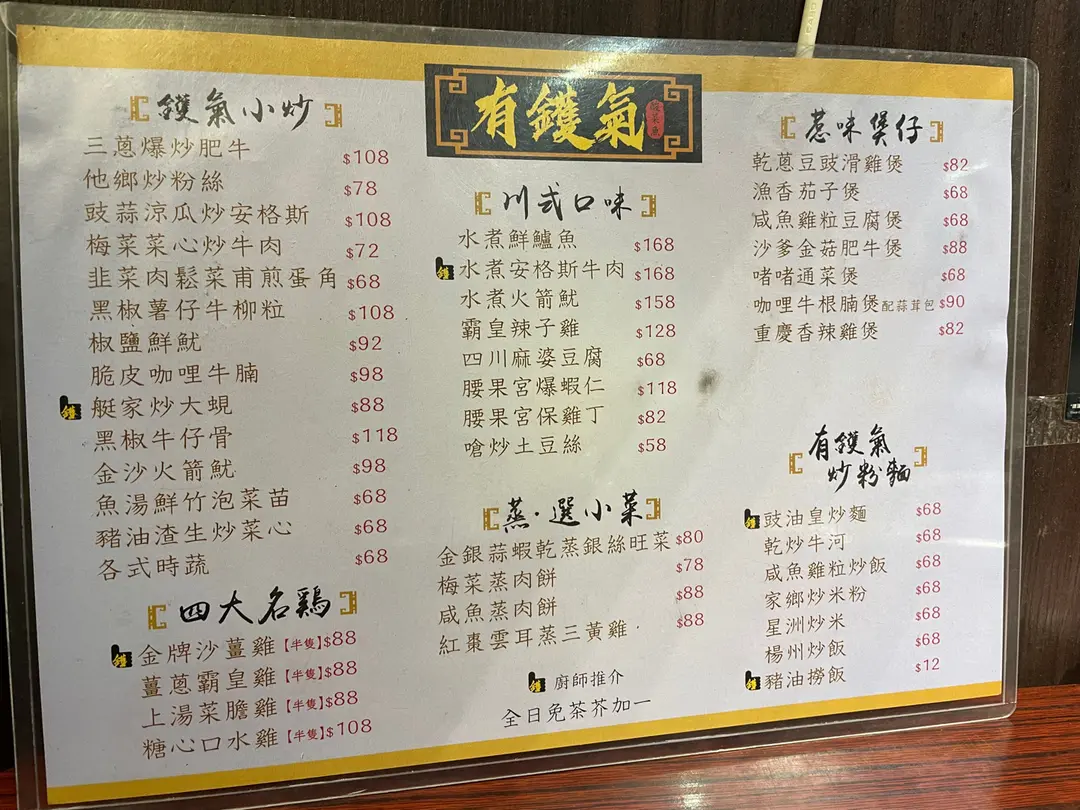 有鑊氣
鑊氣小炒
三蔥爆炒肥牛 $108
他鄉炒粉絲 $78
豉蒜涼瓜炒安格斯 $108
梅菜菜心炒牛肉 $72
韭菜肉鬆菜甫煎蛋角 $68
黑椒薯仔牛柳粒 $108
椒鹽鮮魷 $92
脆皮咖哩牛腩 $98
鑊 艇家炒大蜆 $88
黑椒牛仔骨 $118
金沙火箭魷 $98
魚湯鮮竹泡菜苗 $68
豬油渣生炒菜心 $68
各式時蔬 $68
四大名鷄
鑊 金牌沙薑雞【半隻】$88
薑蔥霸皇雞【半隻】$88
上湯菜膽雞【半隻】$88
糖心口水雞【半隻】$108
川式口味
水煮鮮鱸魚 $168
鑊 水煮安格斯牛肉 $168
水煮火箭魷 $158
霸皇辣子雞 $128
四川麻婆豆腐 $68
腰果宮爆蝦仁 $118
腰果宮保雞丁 $82
嗆炒土豆絲 $58
蒸·選小菜
金銀蒜蝦乾蒸銀絲旺菜 $80
梅菜蒸肉餅 $78
咸魚蒸肉餅 $88
紅棗雲耳蒸三黃雞 $88
鑊 廚師推介
全日免茶芥加一
惹味煲仔
乾蔥豆豉滑雞煲 $82
漁香茄子煲 $68
咸魚雞粒豆腐煲 $68
沙爹金菇肥牛煲 $88
啫啫通菜煲 $68
咖哩牛根腩煲配蒜茸包 $90
重慶香辣雞煲 $82
有鑊氣
炒粉麵
鑊 豉油皇炒麵 $68
乾炒牛河 $68
咸魚雞粒炒飯 $68
家鄉炒米粉 $68
星洲炒米 $68
楊州炒飯 $68
鑊 豬油撈飯 $12